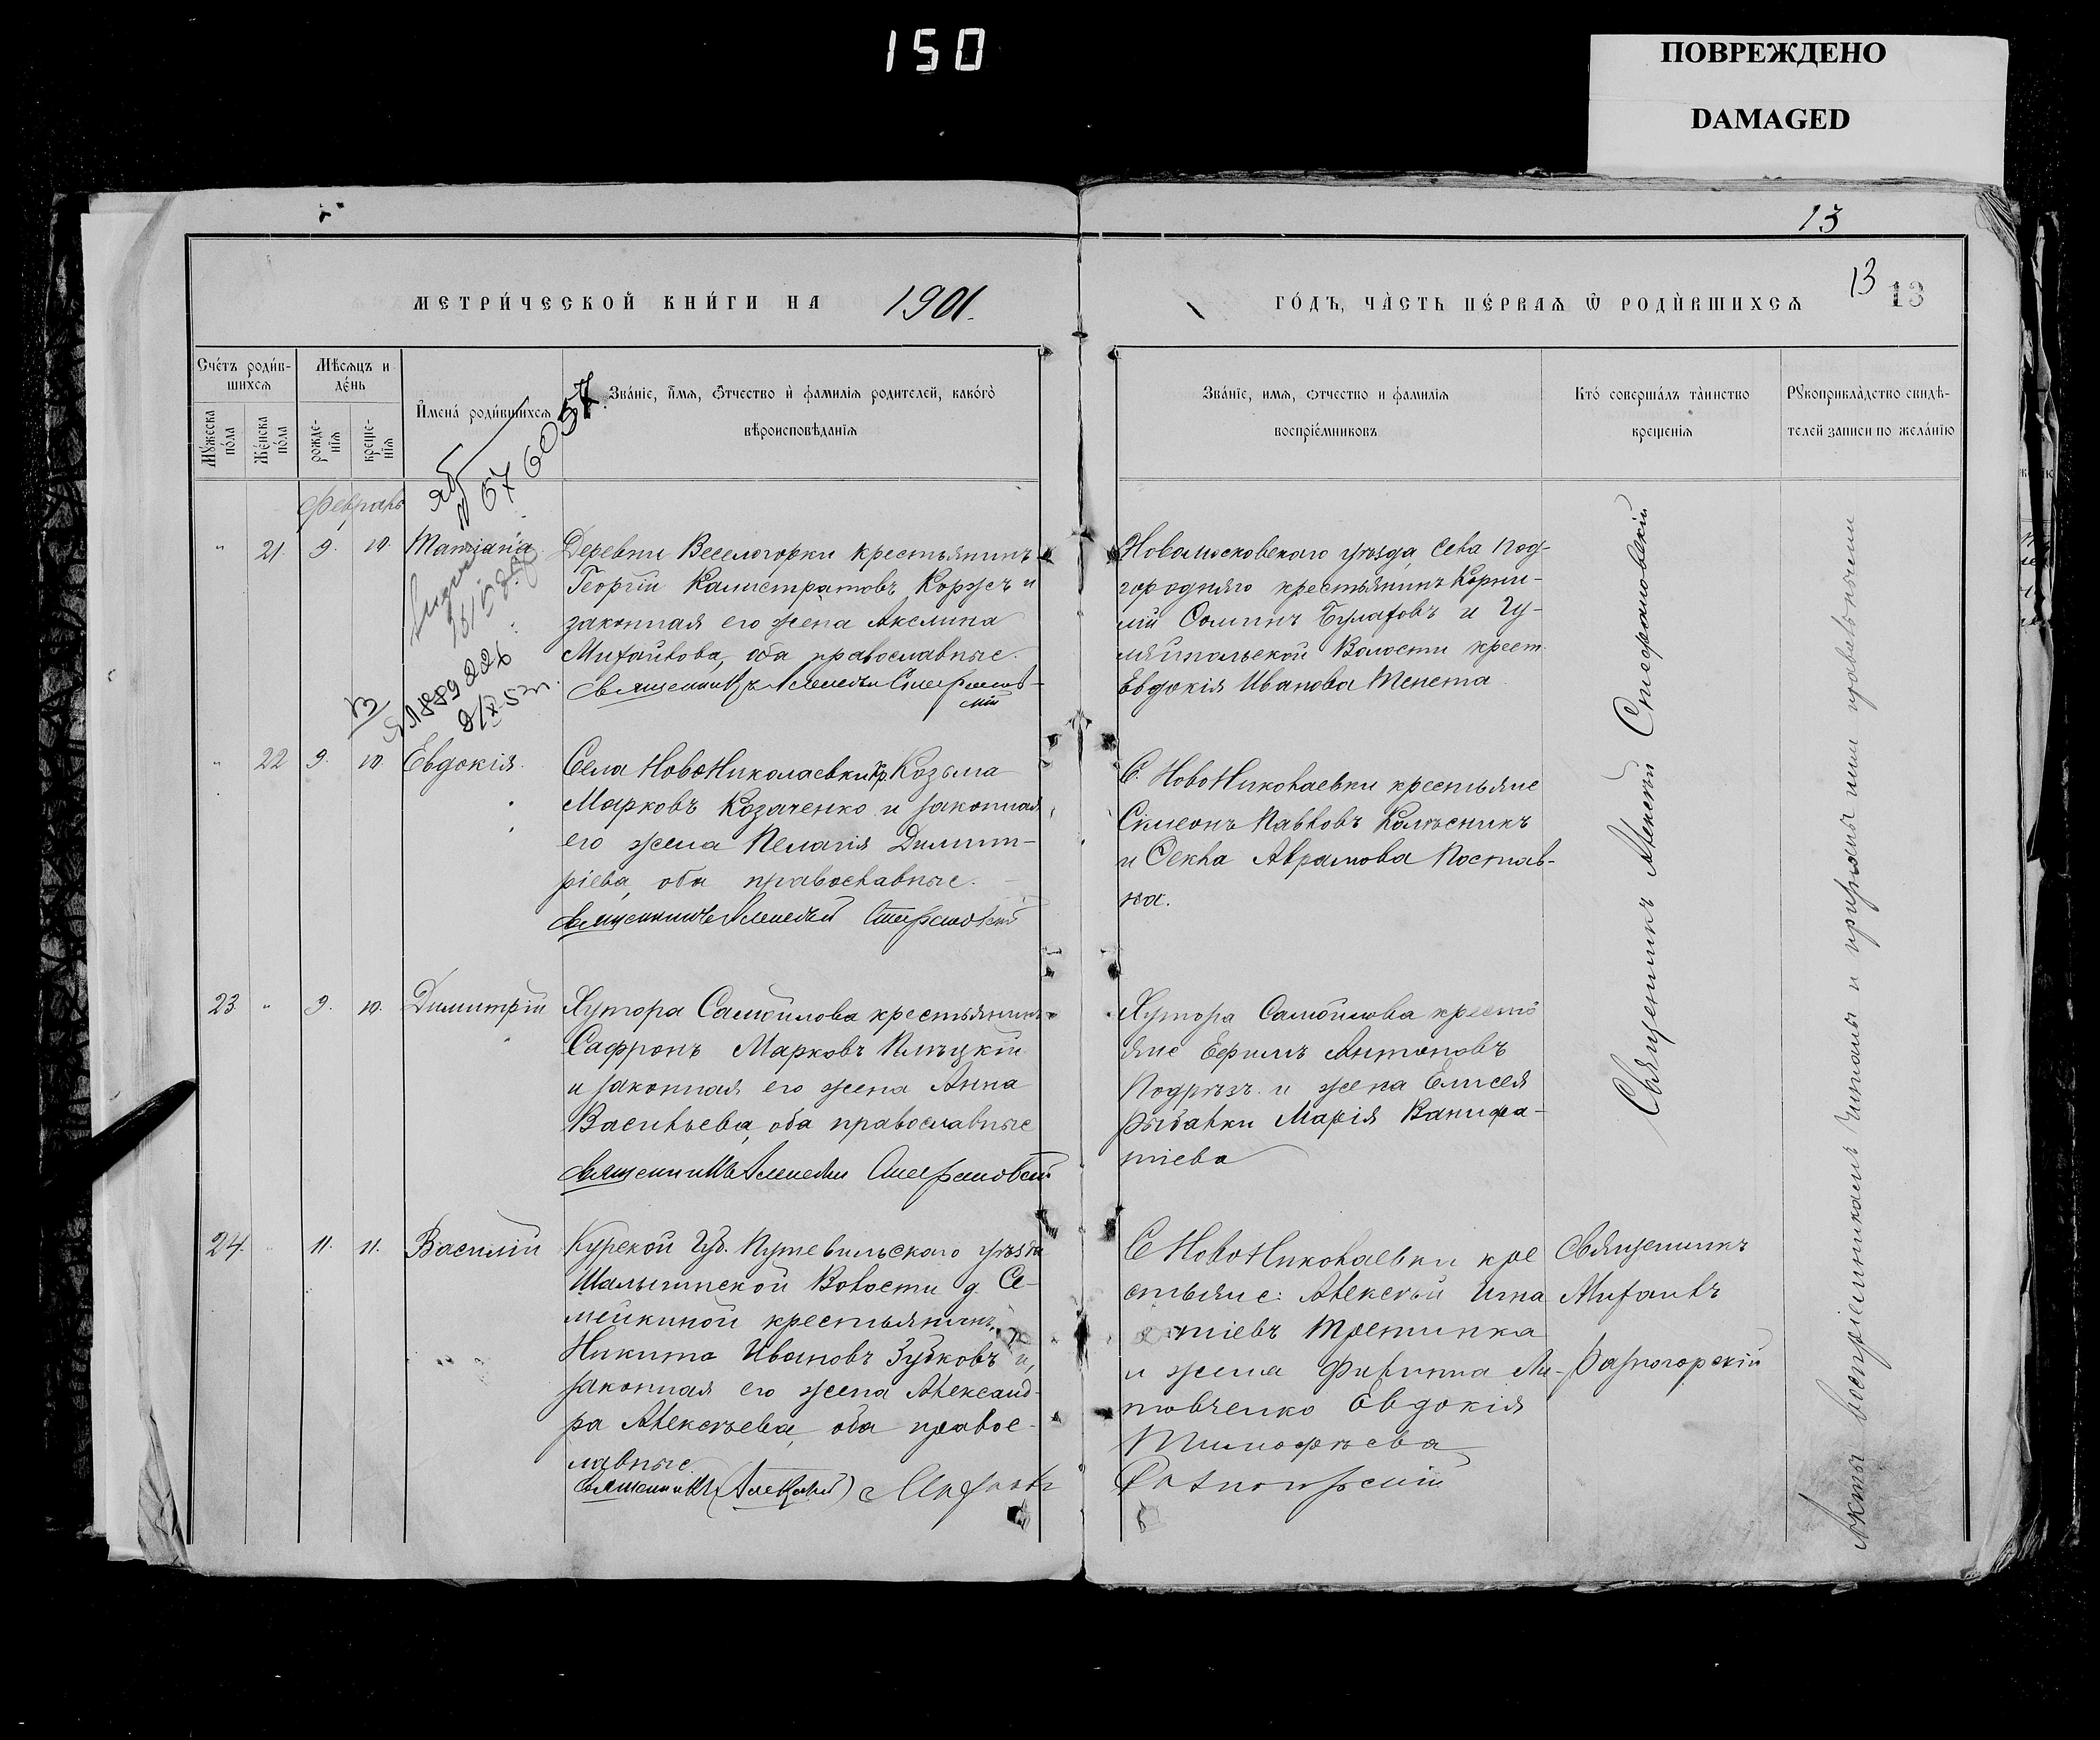 150
ПОВРЕЖДЕНО
DAMAGED
13
13
13
МЕТРИ́ЧЕСКОЙ КНИ́ГИ НА 1901.
ГО́ДЪ, ЧА̀СТЬ ПЕ́РВАѦ Ѿ РОДЍВШИХСѦ
Сче́тъ роди́в-
шихсѧ
Мѣсѧцъ и
де́нь
Мꙋ́жеска
по́ла
Же́нска
по́ла
рожде-
нїѧ
креще-
нїѧ
И҆мена̀ роди́вшихсѧ
Зва́нїе, и҆́мѧ, ѻ҆́тчество и҆ фамилїѧ родителей, како́гѡ
вѣроисповѣданїѧ
Зва́нїе, имѧ, ѻтчество и фамилїѧ
воспрїе́мниковъ
Кто́ соверша́лъ та̀инство
крещенїѧ
Рꙋкоприкла̀дство свидѣ-
телей записи по жела́нїю
Февраль
" 21. 9. 10. Татіана
Деревни Веселогорки крестьянинъ
Георгій Калистратовъ Коржъ и
законная его жена Акелина
Михайлова, оба православные.
Священникъ Алексѣй Стефанов-
скій
Новомосковскаго уѣзда, села Под-
городняго крестьянинъ Корни-
лій Булаховъ и Гу-
ляйпольской Волости крест.
Евдокія Иванова Тенета
" 22 9. 10. Евдокія.
Села НовоНиколаевки кр. Козьма
Марковъ Козаченко и законная
его жена Пелагія Димит-
ріева, оба православные.
Священникъ Алексѣй Стефановскій
С. НовоНиколаевки крестьяне
Сімеонъ Павловъ Колѣсникъ
и Секла Аврамова Постав-
на.
23 " 9. 10. Димитрій
Хутора Самойлова крестьянинъ
Сафронъ Марковъ
и законная его жена Анна
Васильева, оба православные
Священникъ Алексѣй Стефановскій
Хутора Самойлова кресть
яне Ефимъ Антоновъ
Подрѣзъ и жена Елисея
Рыбалки Марія Ванифа-
тіева
24. " 11. 11. Василій
Курской Губ. Путевильскаго уѣзда
Шалыгинской Волости д. Се-
мейкиной крестьянинъ
Никита Ивановъ Зубковъ и
законная его жена Александ-
ра Алексѣева, оба правос-
лавные
Священникъ (Алексѣй) Михаилъ
С НовоНиколаевки кре
стьяне: Алексѣй Игна
тіевъ Третинка
и жена Филиппа Ли-
товченко Евдокія
Тимофѣева
Разногорскій
Священникъ Алексѣй Стефановскій
Священникъ
Михаилъ
Разногорскій
Акты воспріемникамъ читаны и признаны ими правильными